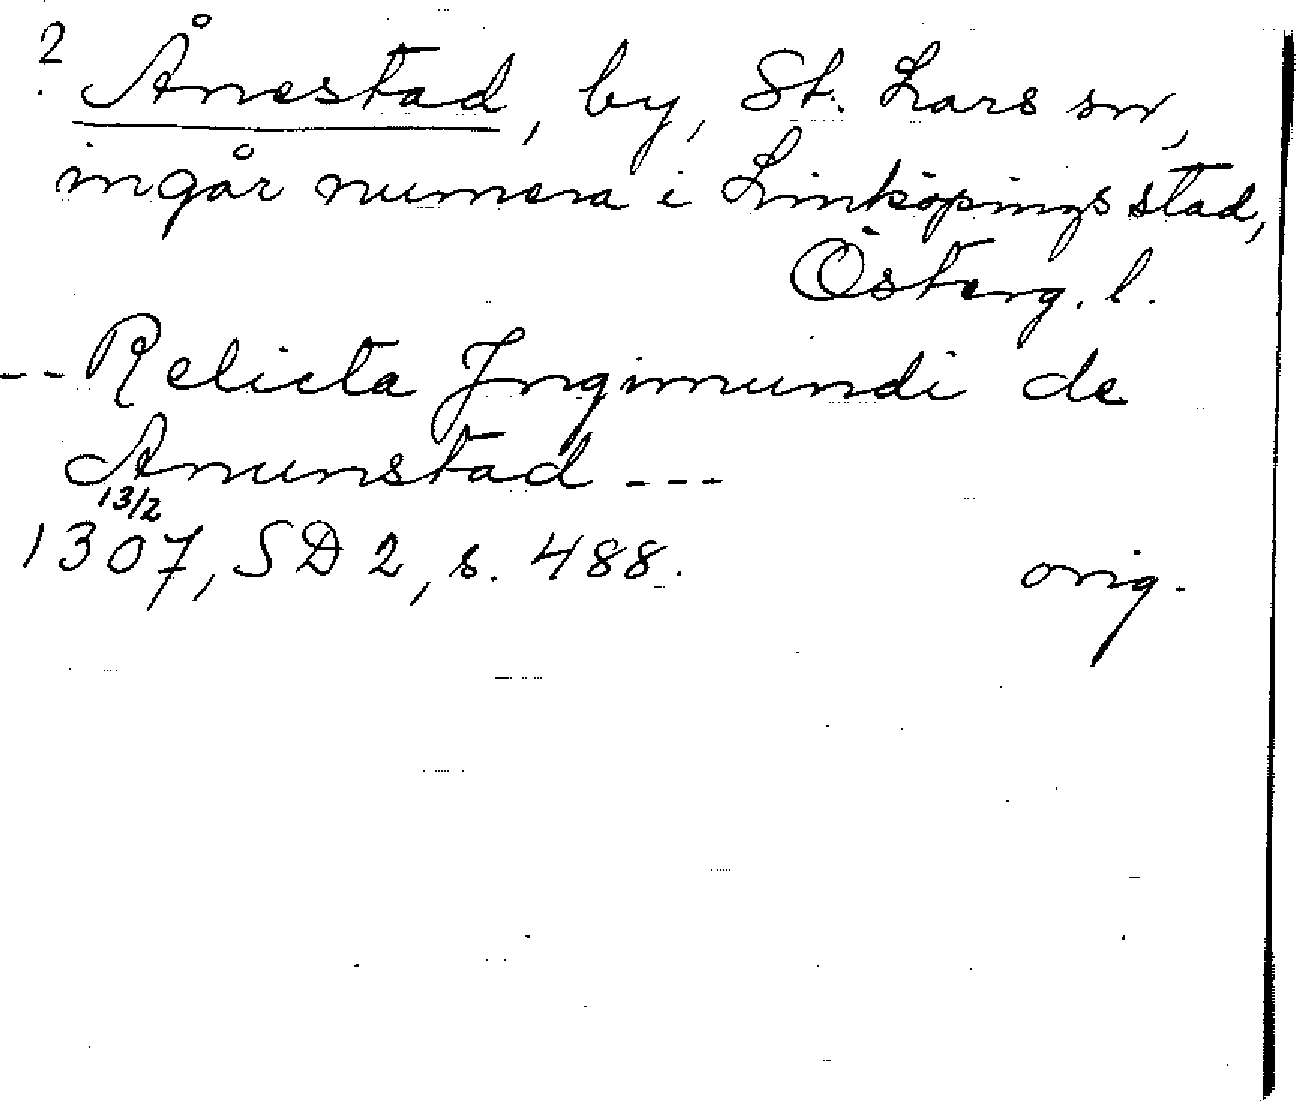 ? Ånestad, by, St. Lars sn,
ingår numera i Linköpings stad,
Österg. l.
-- Relicta Jngimundi de
Anunstad ---
13/2
1307, SD 2, s. 488. orig.